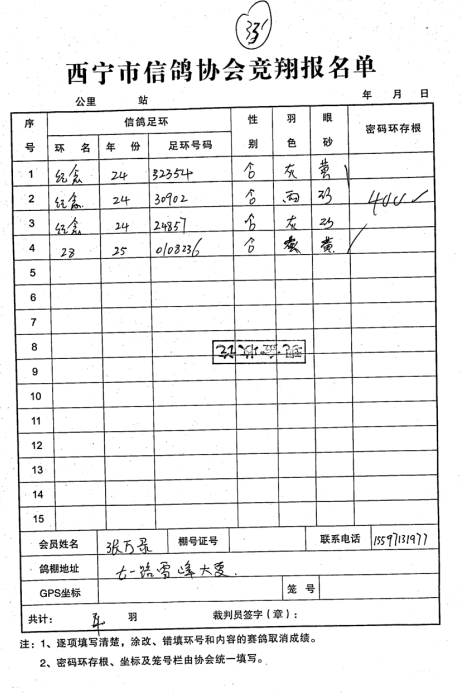 西宁市信鸽协会竞翔报名单
公里 站 年 月 日
序号 信鸽足环 性别 羽色 眼砂 密码环存根
环名 年份 足环号码
1 纪念 24 32354 合 灰 黄
2 纪念 24 30902 合 雨 砂 400 ✓
3 纪念 24 24857 合 灰 砂
4 28 25 0108236 合 黄
5
6
7
8
9
10
11
12
13
14
15
会员姓名 张万录 棚号证号 联系电话 15597131977
鸽棚地址 七一路雪峰大厦
GPS坐标 笼号
共计: 羽 裁判员签字(章):
注:1、逐项填写清楚,涂改、错填环号和内容的赛鸽取消成绩。
2、密码环存根、坐标及笼号栏由协会统一填写。